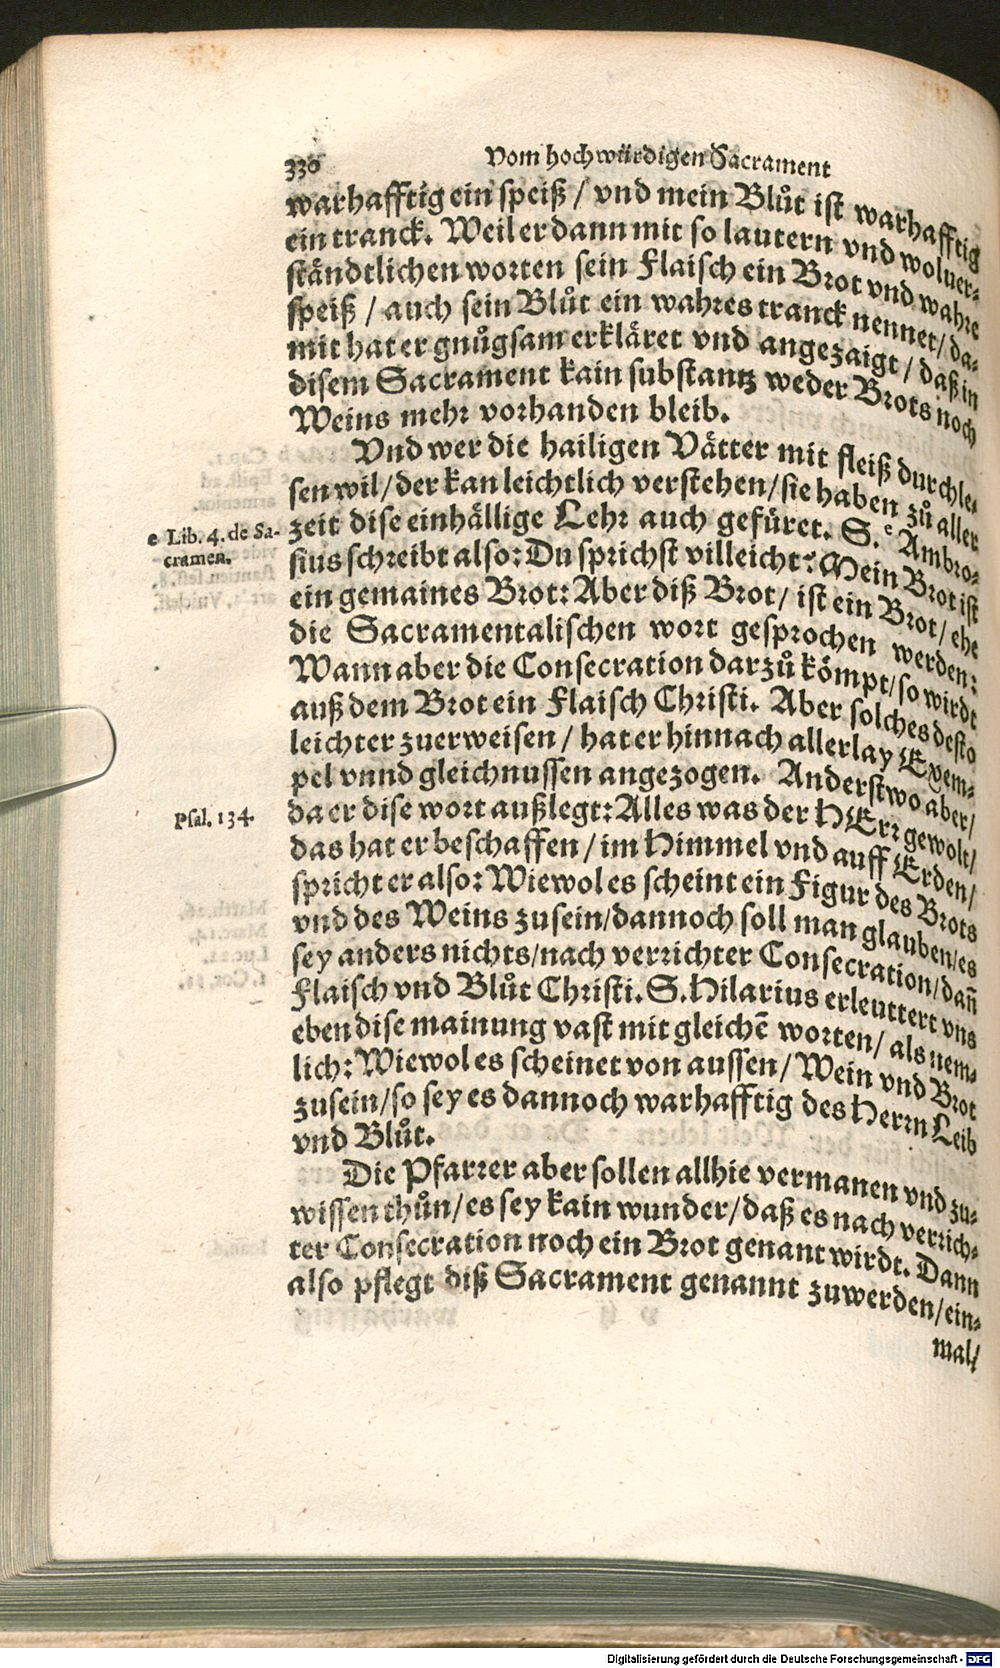 330 Vom hochwürdigen Sacrament
warhafftig ein speiß / vnd mein Blůt ist warhafftig
ein tranck. Weil er dann mit so lautern vnd woluer⸗
ständtlichen worten sein Flaisch ein Brot vnd wahre
speiß / auch sein Blůt ein wahres tranck nennet / da⸗
mit hat er gnůgsam erkläret vnd angezaigt / daß in
disem Sacrament kain substantz weder Brots noch
Weins mehr vorhanden bleib.
Vnd wer die hailigen Vätter mit fleiß durchle⸗
sen wil / der kan leichtlich verstehen / sie haben zů aller
e Lib. 4. de Sa-
cramen.
zeit dise einhällige Lehr auch gefüret. S. e Ambro⸗
sius schreibt also: Du sprichst villeicht: Mein Brot ist
ein gemaines Brot: Aber diß Brot / ist ein Brot / ehe
die Sacramentalischen wort gesprochen werden:
Wann aber die Consecration darzů kömpt / so wirdt
auß dem Brot ein Flaisch Christi. Aber solches desto
leichter zuerweisen / hat er hinnach allerlay Exem⸗
pel vnnd gleichnussen angezogen. Anderstwo aber /
Psal. 134.
da er dise wort außlegt: Alles was der HErr gewolt /
das hat er beschaffen / im Himmel vnd auff Erden /
spricht er also: Wiewol es scheint ein Figur des Brots
vnd des Weins zusein / dannoch soll man glauben / es
sey anders nichts / nach verrichter Consecration / dañ
Flaisch vnd Blůt Christi. S. Hilarius erleuttert vns
eben dise mainung vast mit gleichẽ worten / als nem⸗
lich: Wiewol es scheinet von aussen / Wein vnd Brot
zusein / so sey es dannoch warhafftig des Herrn Leib
vnd Blůt.
Die Pfarrer aber sollen allhie vermanen vnd zu⸗
wissen thůn / es sey kain wunder / daß es nach verrich⸗
ter Consecration noch ein Brot genant wirdt. Dann
also pflegt diß Sacrament genannt zuwerden / ein⸗
mal /
Digitalisierung gefördert durch die Deutsche Forschungsgemeinschaft - DFG